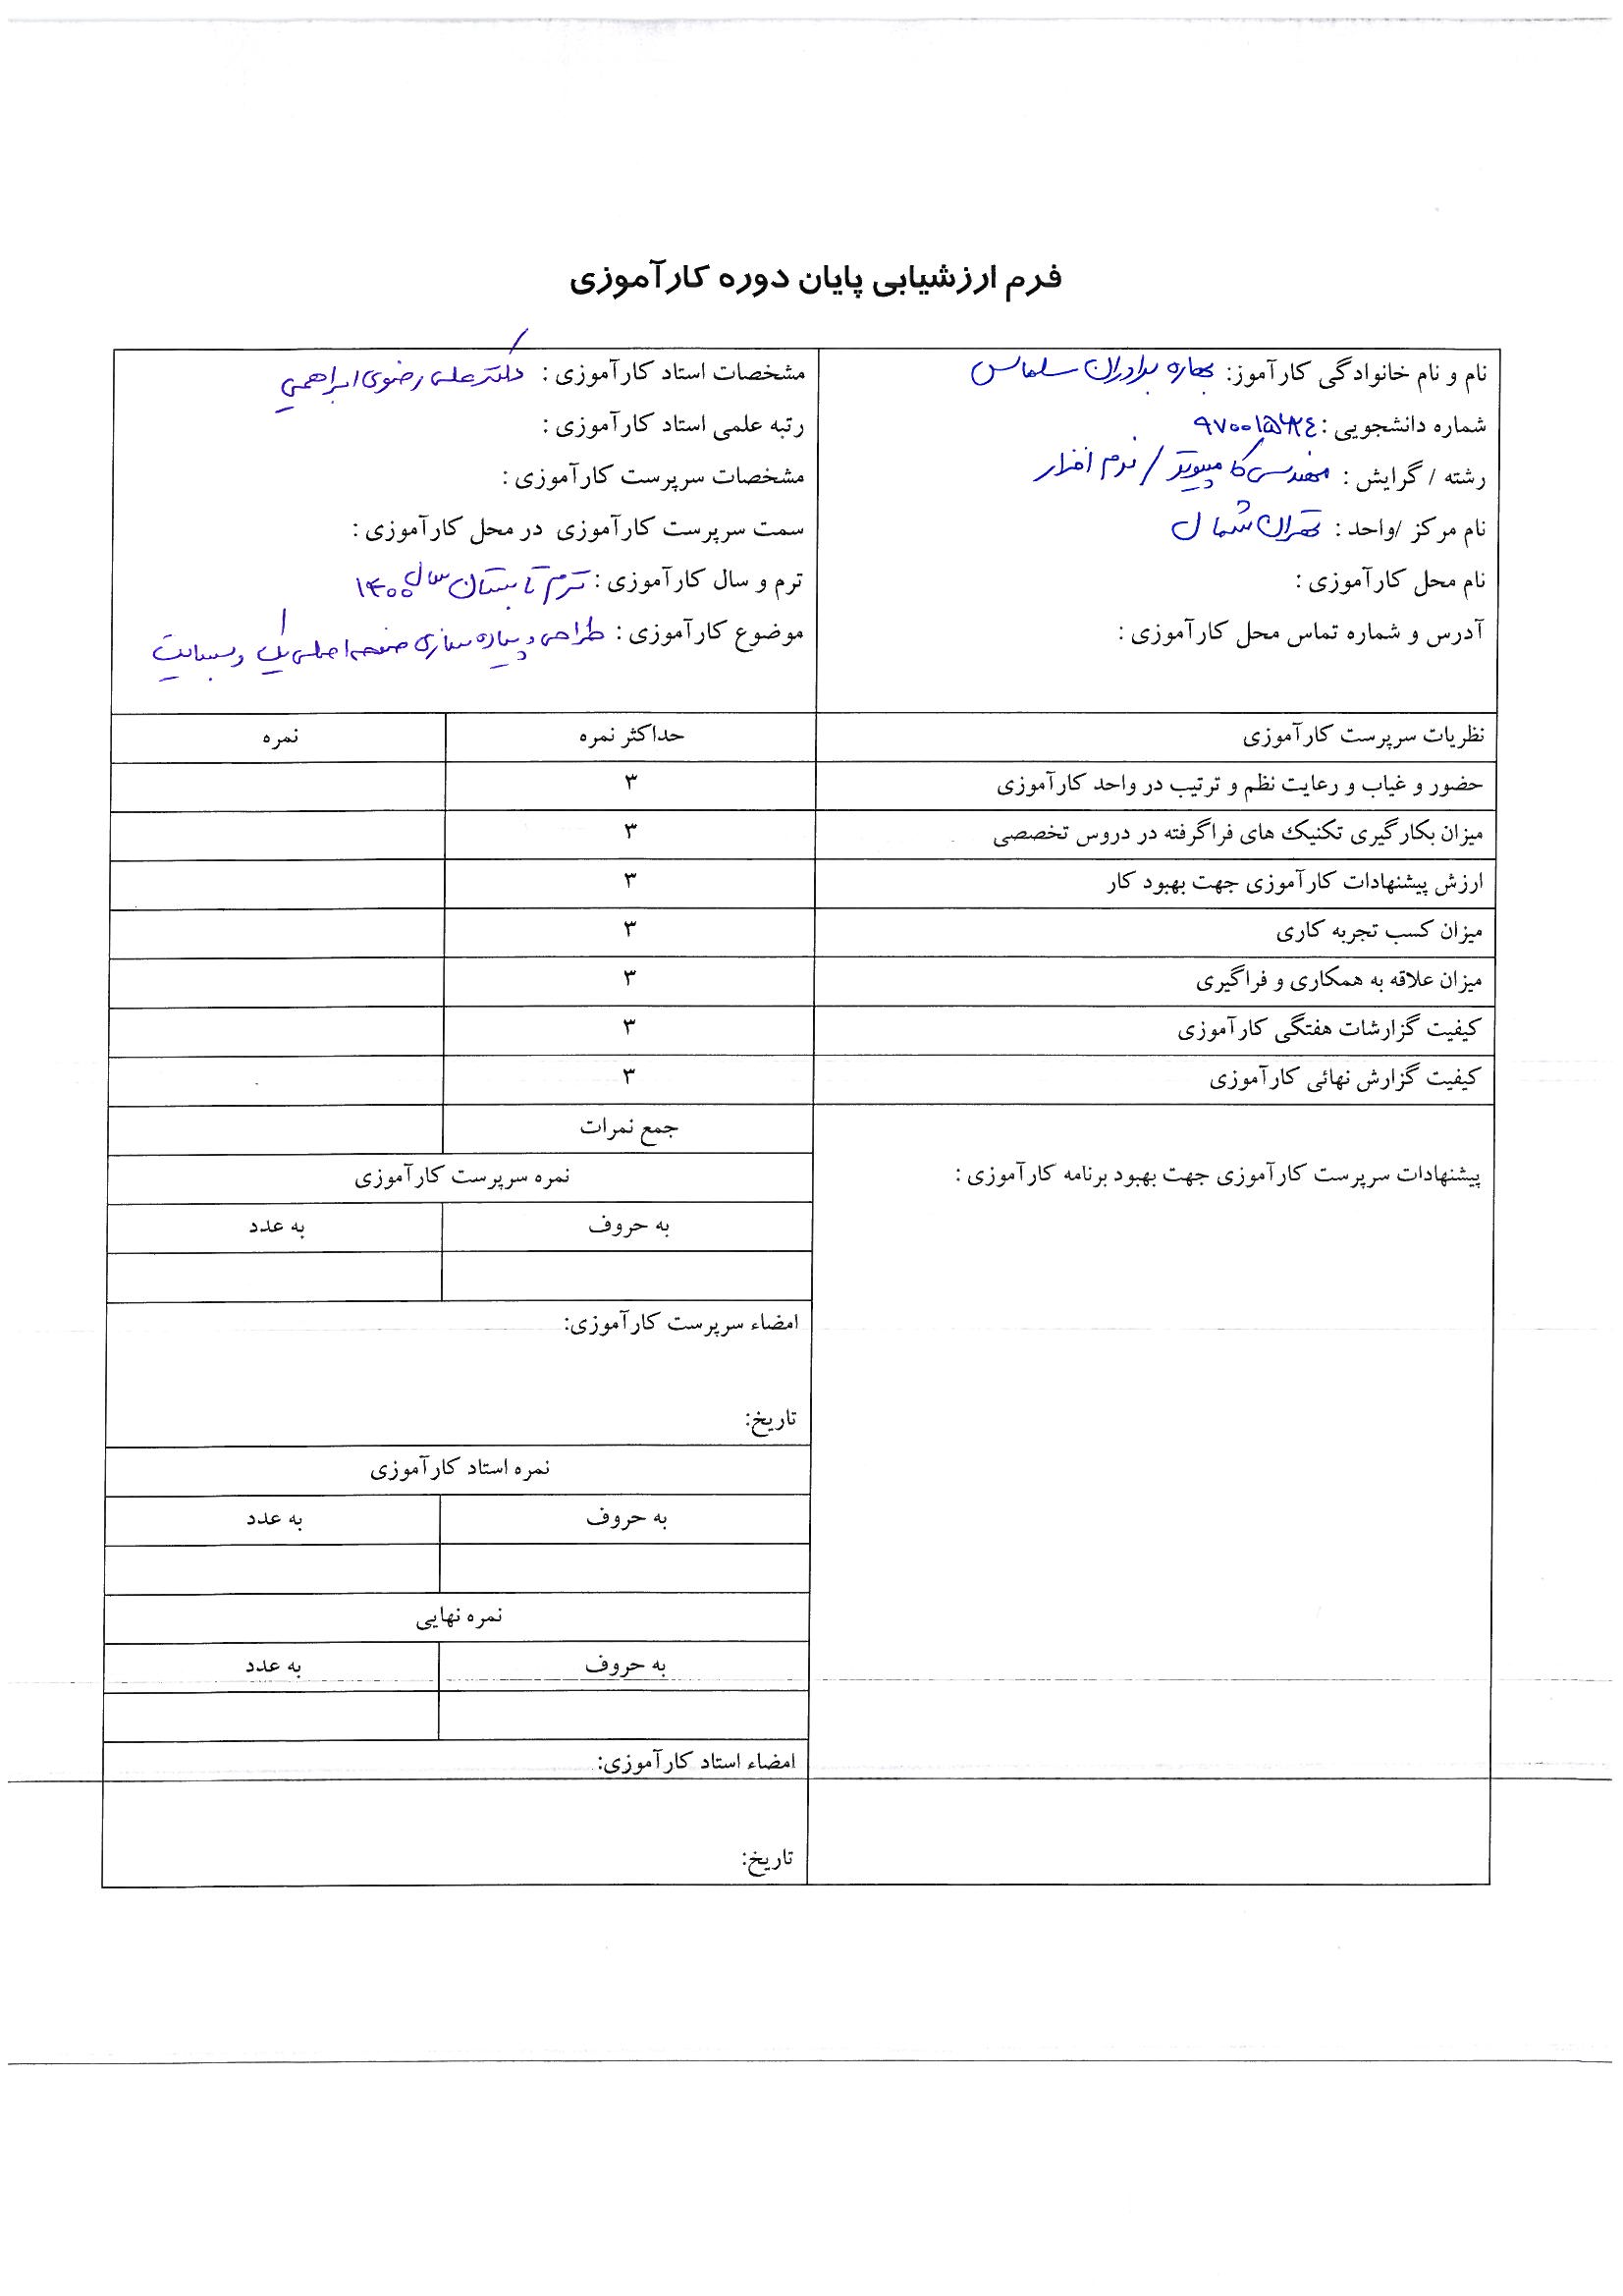 فرم ارزشیابی پایان دوره کارآموزی
نام و نام خانوادگی کارآموز: بهاره برادران سلماس
شماره دانشجویی :
رشته / گرایش : مهندسی کامپیوتر / نرم افزار
نام مرکز /واحد : تهران شمال
نام محل کارآموزی :
آدرس و شماره تماس محل کارآموزی :
مشخصات استاد کارآموزی : دکتر علی رضوی ابراهیمی
رتبه علمی استاد کارآموزی :
مشخصات سرپرست کارآموزی :
سمت سرپرست کارآموزی در محل کارآموزی :
ترم و سال کارآموزی : ترم تابستان سال ۱۴۰۰
موضوع کارآموزی : طراحی و پیاده سازی صفحه اصلی یک وبسایت
نظریات سرپرست کارآموزی حداکثر نمره نمره
حضور و غیاب و رعایت نظم و ترتیب در واحد کارآموزی ۳
میزان بکارگیری تکنیک های فراگرفته در دروس تخصصی ۳
ارزش پیشنهادات کارآموزی جهت بهبود کار ۳
میزان کسب تجربه کاری ۳
میزان علاقه به همکاری و فراگیری ۳
کیفیت گزارشات هفتگی کارآموزی ۳
کیفیت گزارش نهائی کارآموزی ۳
پیشنهادات سرپرست کارآموزی جهت بهبود برنامه کارآموزی :
جمع نمرات
نمره سرپرست کارآموزی
به حروف به عدد
امضاء سرپرست کارآموزی:
تاریخ:
نمره استاد کارآموزی
به حروف به عدد
نمره نهایی
به حروف به عدد
امضاء استاد کارآموزی:
تاریخ: